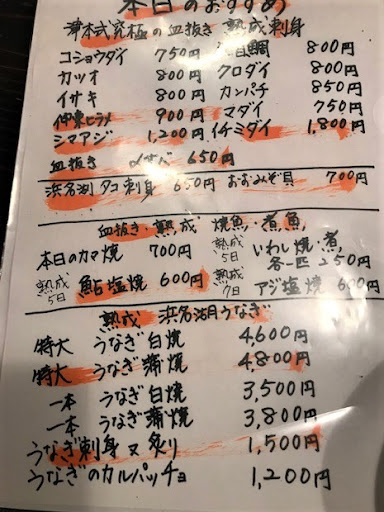 本日のおすすめ
津本式究極の血抜き 熟成刺身
コショウダイ 750円 目鯛 800円
カツオ 800円 クロダイ 800円
イサキ 800円 カンパチ 850円
伊東ヒラメ 900円 マダイ 750円
シマアジ 1,200円 イチミダイ 1,800円
血抜き 〆サバ 650円
浜名湖 タコ刺身 650円 おおみぞ貝 700円
血抜き・熟成 焼魚・煮魚
本日のカマ焼 700円 熟成5日 いわし焼・煮 各一匹 250円
熟成5日 鮎塩焼 600円 熟成7日 アジ塩焼 600円
熟成 浜名湖うなぎ
特大 うなぎ白焼 4,600円
特大 うなぎ蒲焼 4,800円
一本 うなぎ白焼 3,500円
一本 うなぎ蒲焼 3,800円
うなぎ刺身又炙り 1,500円
うなぎのカルパッチョ 1,200円